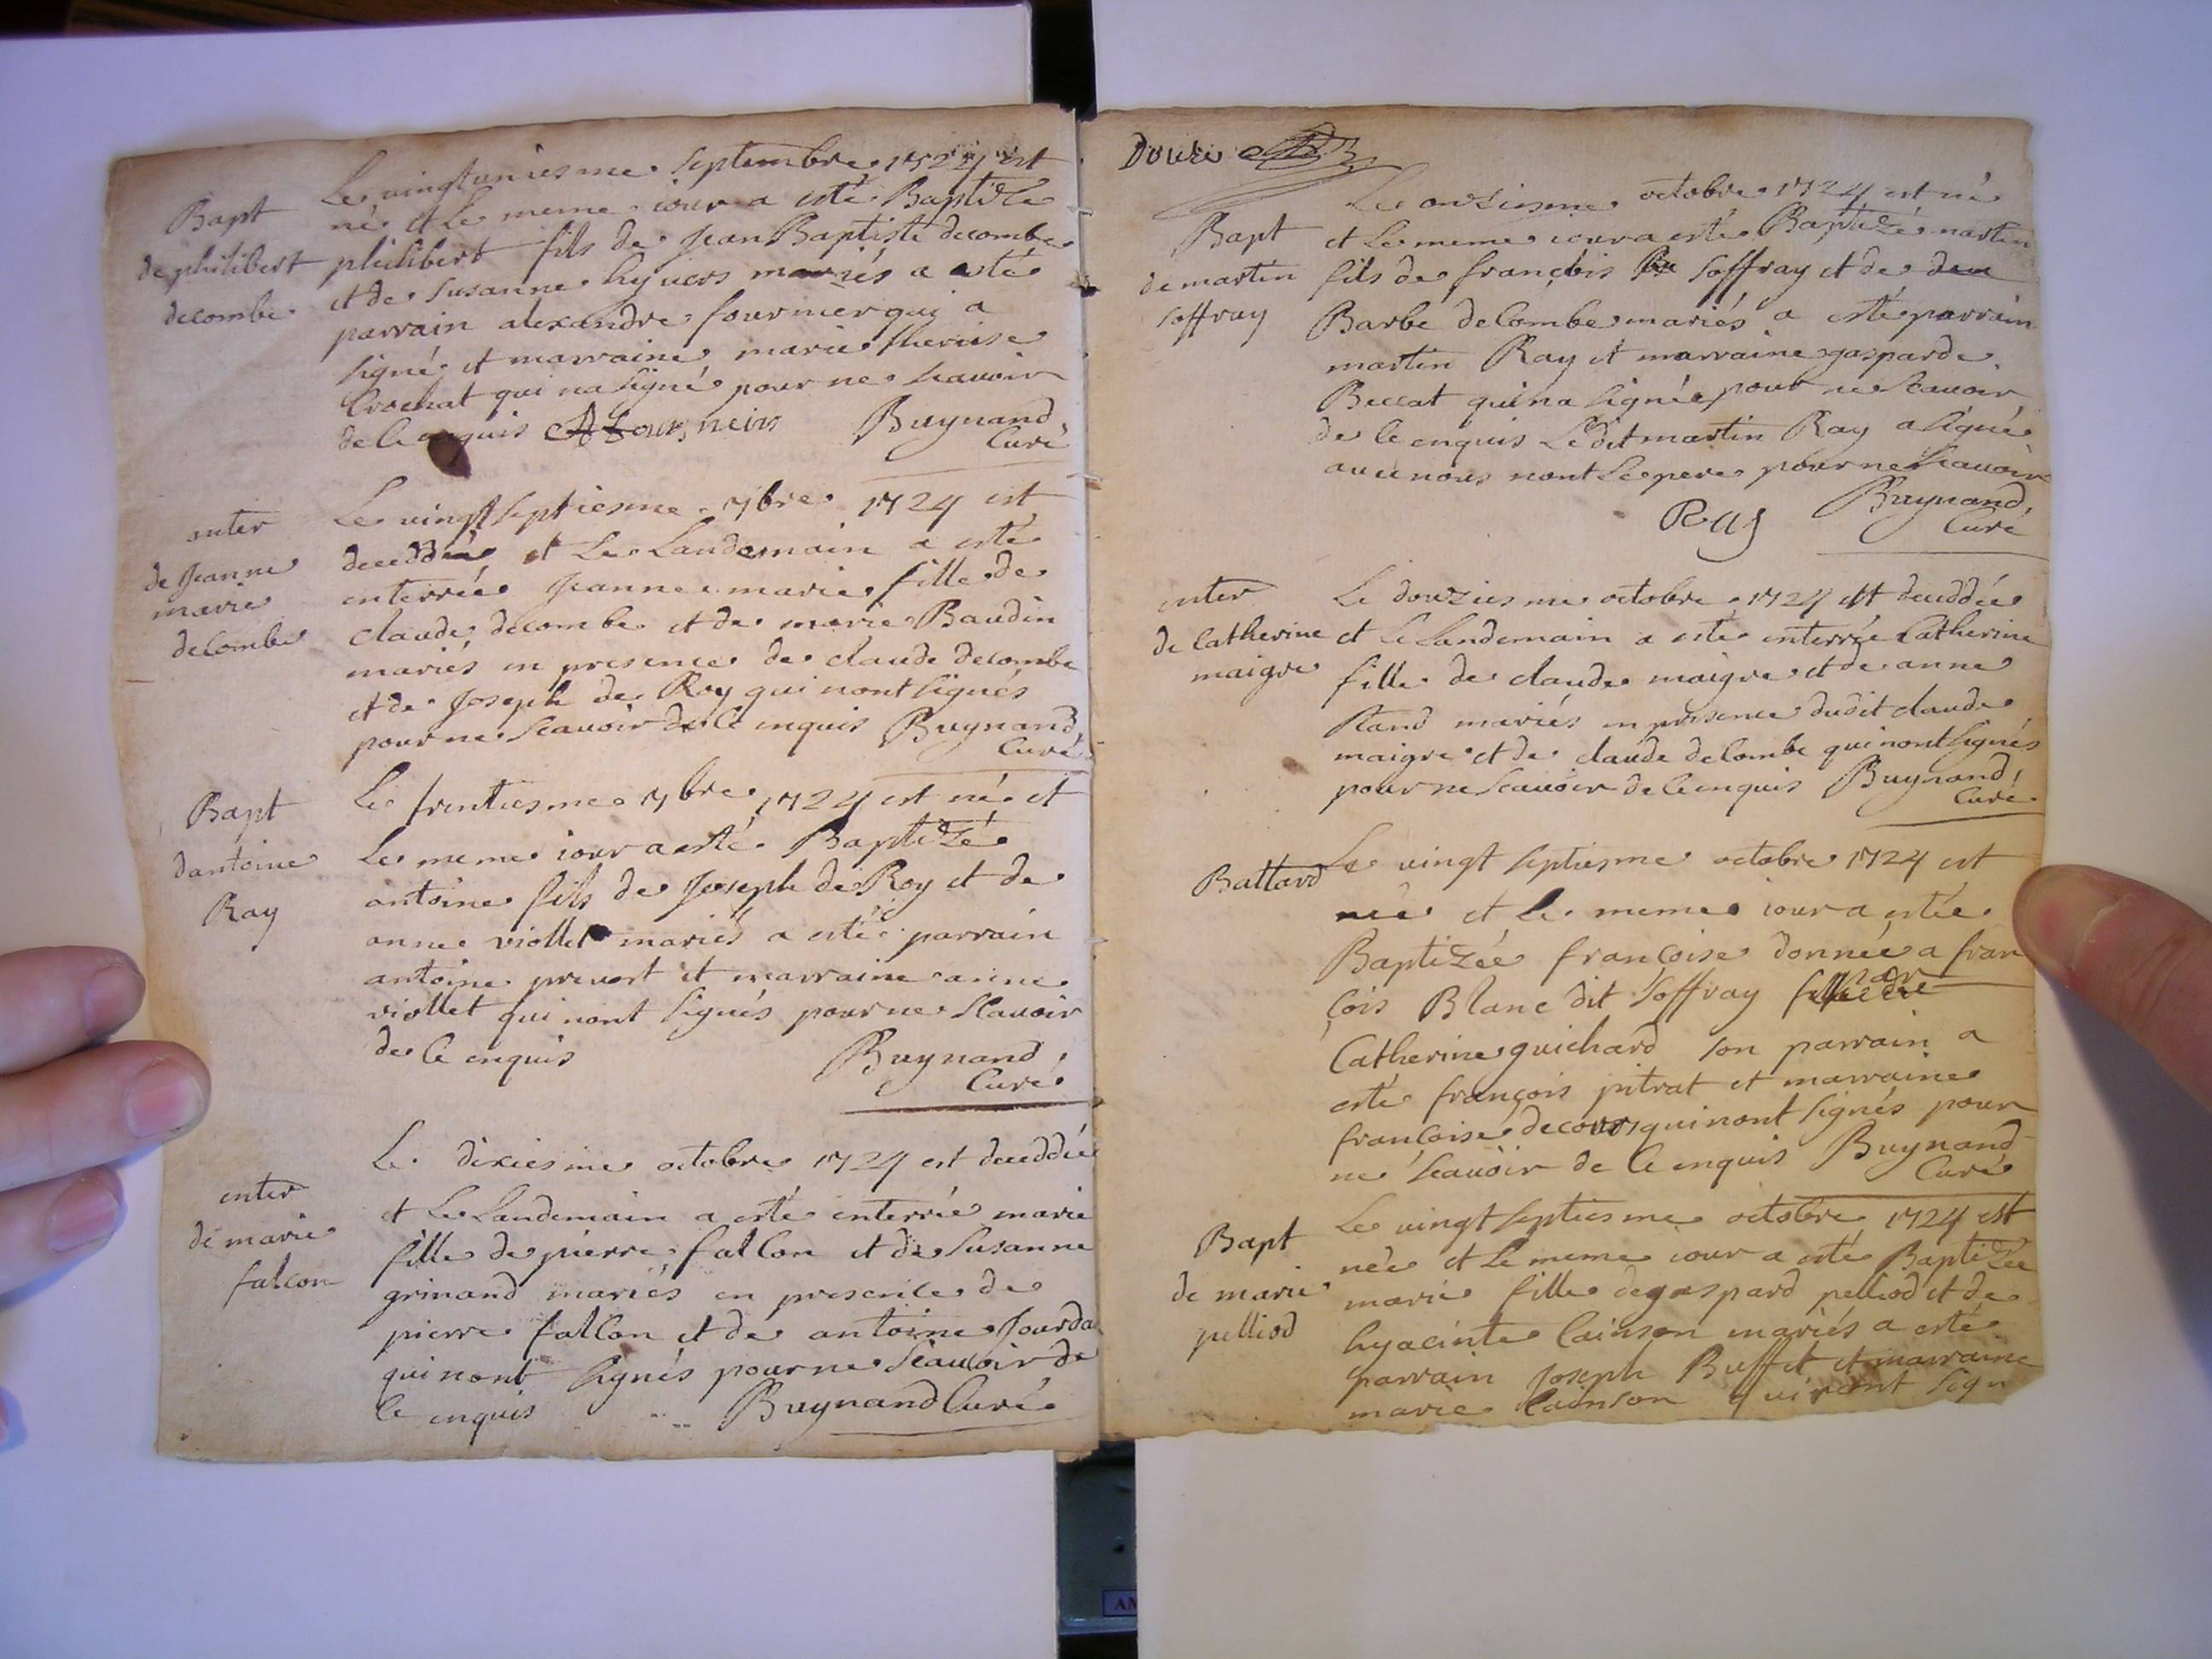 Bapt
de philibert
decombe
Le vingtuniesme septembre 1724 est
né et Le meme iour a esté Baptizé
philibert fils de Jean Baptiste decombe
et de Susanne hyvers mariés a esté
parrain alexandre fournier qui a
signé et marraine marie therese
Crochat qui na signé pour ne scauoir
de ce enquis Buynand,
Curé
enter
de Jeanne
marie
decombe
Le vingt septiesme 7bre 1724 est
deceddée et Le Landemain a esté
enterrée Jeanne marie fille de
claude decombe et de marie Baudin
mariés en presence de claude decombe
et de Joseph de Roy qui nont signés
pour ne scauoir de ce enquis Buynand,
Curé
Bapt
dantoine
Ray
Le trentiesme 7bre 1724 est né et
Le meme iour a esté Baptizé
antoine fils de Joseph de Roy et de
anne viollet mariés a esté parrain
antoine prevost et marraine anne
viollet qui nont signés pour ne scauoir
de ce enquis Buynand,
Curé
enter
de marie
falcon
Le dixiesme octobre 1724 est deceddée
et Le Landemain a esté enterrée marie
fille de pierre falcon et de Susanne
grinand mariés en presence de
pierre falcon et de antoine Jourda
qui nont signés pour ne scauoir de
ce enquis Buynand Curé
Douze
Bapt
de martin
soffray
Le onziesme octobre 1724 est né
et Le meme iour a esté Baptizé martin
fils de francois soffray et de
Barbe decombe mariés a esté parrain
martin Ray et marraine gasparde
Beccat qui na signée pour ne scauoir
de ce enquis Ledit martin Ray a signé
auec nous nont Le pere pour ne scauoir
Ray Buynand,
Curé
enter
de Catherine
maigre
Le douziesme octobre 1724 est deceddée
et Le Landemain a esté enterrée Catherine
fille de claude maigre et de anne
mariés en presence dudit claude
maigre et de claude decombe qui nont signés
pour ne scauoir de ce enquis Buynand,
Curé
Battard
Le vingt septiesme octobre 1724 est
née et Le meme iour a estée
Baptizée francoise donnée a fran
çois Blanc dit soffray par
Catherine guichard son parrain a
esté françois pitrat et marraine
francoise decour qui nont signés pour
ne scauoir de ce enquis Buynand
Curé
Bapt
de marie
pelliod
Le vingt septiesme octobre 1724 est
née et Le meme iour a esté Baptizée
marie fille de gaspard pelliod et de
hyacinte Cainson mariés a esté
parrain Joseph Buffet et marraine
marie Cainson qui nont sign